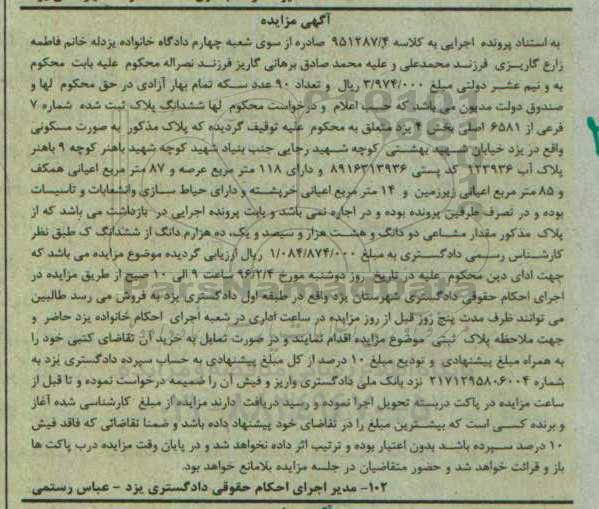 آگهی مزایده
به استناد پرونده اجرایی به کلاسه ۹۵۱۲۸۷/۴ صادره از سوی شعبه چهارم دادگاه خانواده یزدله خانم فاطمه
زارع گاریزی فرزند محمدعلی و علیه محمد صادق برهانی گاریز فرزند نصراله محکوم علیه بابت محکوم
به و نیم عشر دولتی مبلغ ۳/۹۷۴/۰۰۰ ریال و تعداد ۹۰ عدد سکه تمام بهار آزادی در حق محکوم لها و
صندوق دولت مدیون می باشد که حسب اعلام و درخواست محکوم لها ششدانگ پلاک ثبت شده شماره ۷
فرعی از ۶۵۸۱ اصلی بخش ۴ یزد متعلق به محکوم علیه توقیف گردیده که پلاک مذکور به صورت مسکونی
واقع در یزد خیابان شهید بهشتی کوچه شهید رجایی جنب بنیاد شهید کوچه شهید باهنر کوچه ۹ باهنر
پلاک آب ۲۲۳۹۳۶ کد پستی ۸۹۱۶۳۱۳۹۳۶ و دارای ۱۱۸ متر مربع عرصه و ۸۷ متر مربع اعیانی همکف
و ۸۵ متر مربع اعیانی زیرزمین و ۱۴ متر مربع اعیانی خرپشته و دارای حیاط سازی وانشعابات و تاسیسات
بوده و در تصرف طرفین پرونده بوده و در اجاره نمی باشد و بابت پرونده اجرایی در بازداشت می باشد که از
پلاک مذکور مقدار مشاعی دو دانگ و هشت هزار و سیصد و یک، ده هزارم دانگ از ششدانگ ک طبق نظر
کارشناس رسمی دادگستری به مبلغ ۱/۰۸۴/۸۷۴/۰۰۰ ریال ارزیابی گردیده موضوع مزایده می باشد که
جهت ادای دین محکوم علیه در تاریخ روز دوشنبه مورخ ۹۶/۲/۴ ساعت ۹ الی ۱۰ صبح از طریق مزایده در
اجرای احکام حقوقی دادگستری شهرستان یزد واقع در طبقه اول دادگستری یزد به فروش می رسد طالبین
می توانند ظرف مدت پنج روز قبل از روز مزایده در ساعت اداری در شعبه اجرای احکام خانواده یزد حاضر و
جهت ملاحظه پلاک ثبتی موضوع مزایده اقدام نمایند و در صورت تمایل به خرید آن تقاضای کتبی خود را
به همراه مبلغ پیشنهادی و تودیع مبلغ ۱۰ درصد از کل مبلغ پیشنهادی به حساب سپرده دادگستری یزد به
شماره ۲۱۷۱۲۹۵۸۰۶۰۰۴ نزد بانک ملی دادگستری واریز و فیش آن را ضمیمه درخواست نموده و تا قبل از
ساعت مزایده در پاکت دربسته تحویل اجرا نموده و رسید دریافت دارند مزایده از مبلغ کارشناسی شده آغاز
و برنده کسی است که بیشترین مبلغ را در تقاضای خود پیشنهاد داده باشد و ضمنا تقاضائی که فاقد فیش
۱۰ درصد سپرده باشد بدون اعتبار بوده و ترتیب اثر داده نخواهد شد و در پایان وقت مزایده درب پاکت ها
باز و قرائت خواهد شد و حضور متقاضیان در جلسه مزایده بلامانع خواهد بود.
۱۰۲- مدیر اجرای احکام حقوقی دادگستری یزد - عباس رستمی